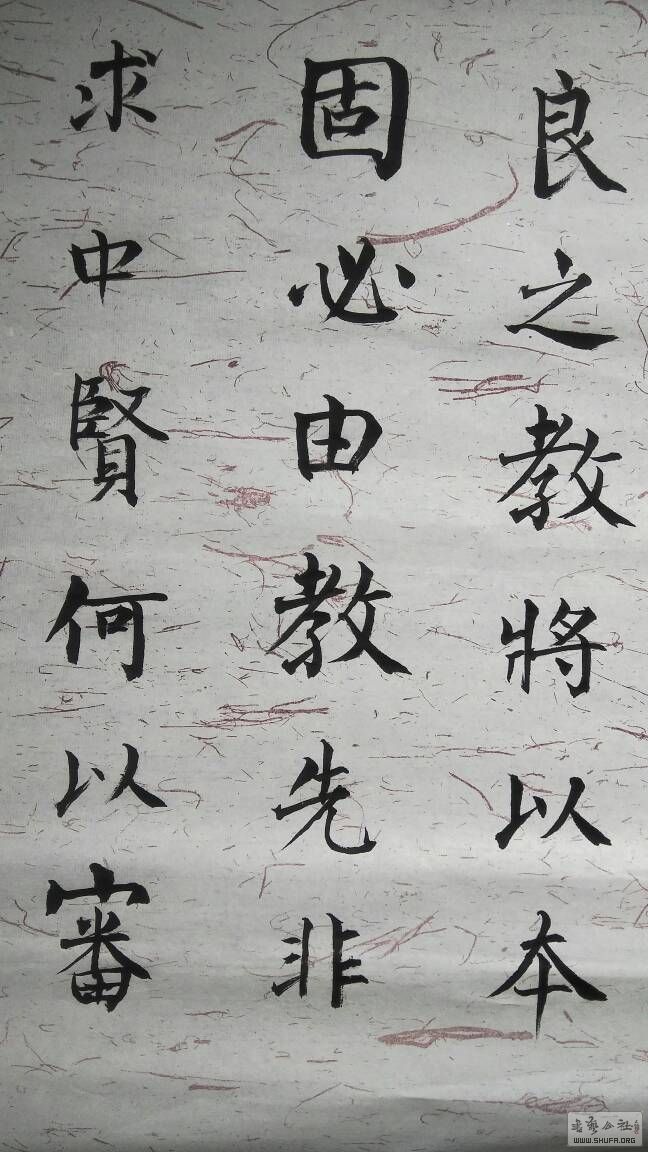 良之教將以本
固必由教先非
求中賢何以審
書藝公社
WWW.SHUFA.ORG